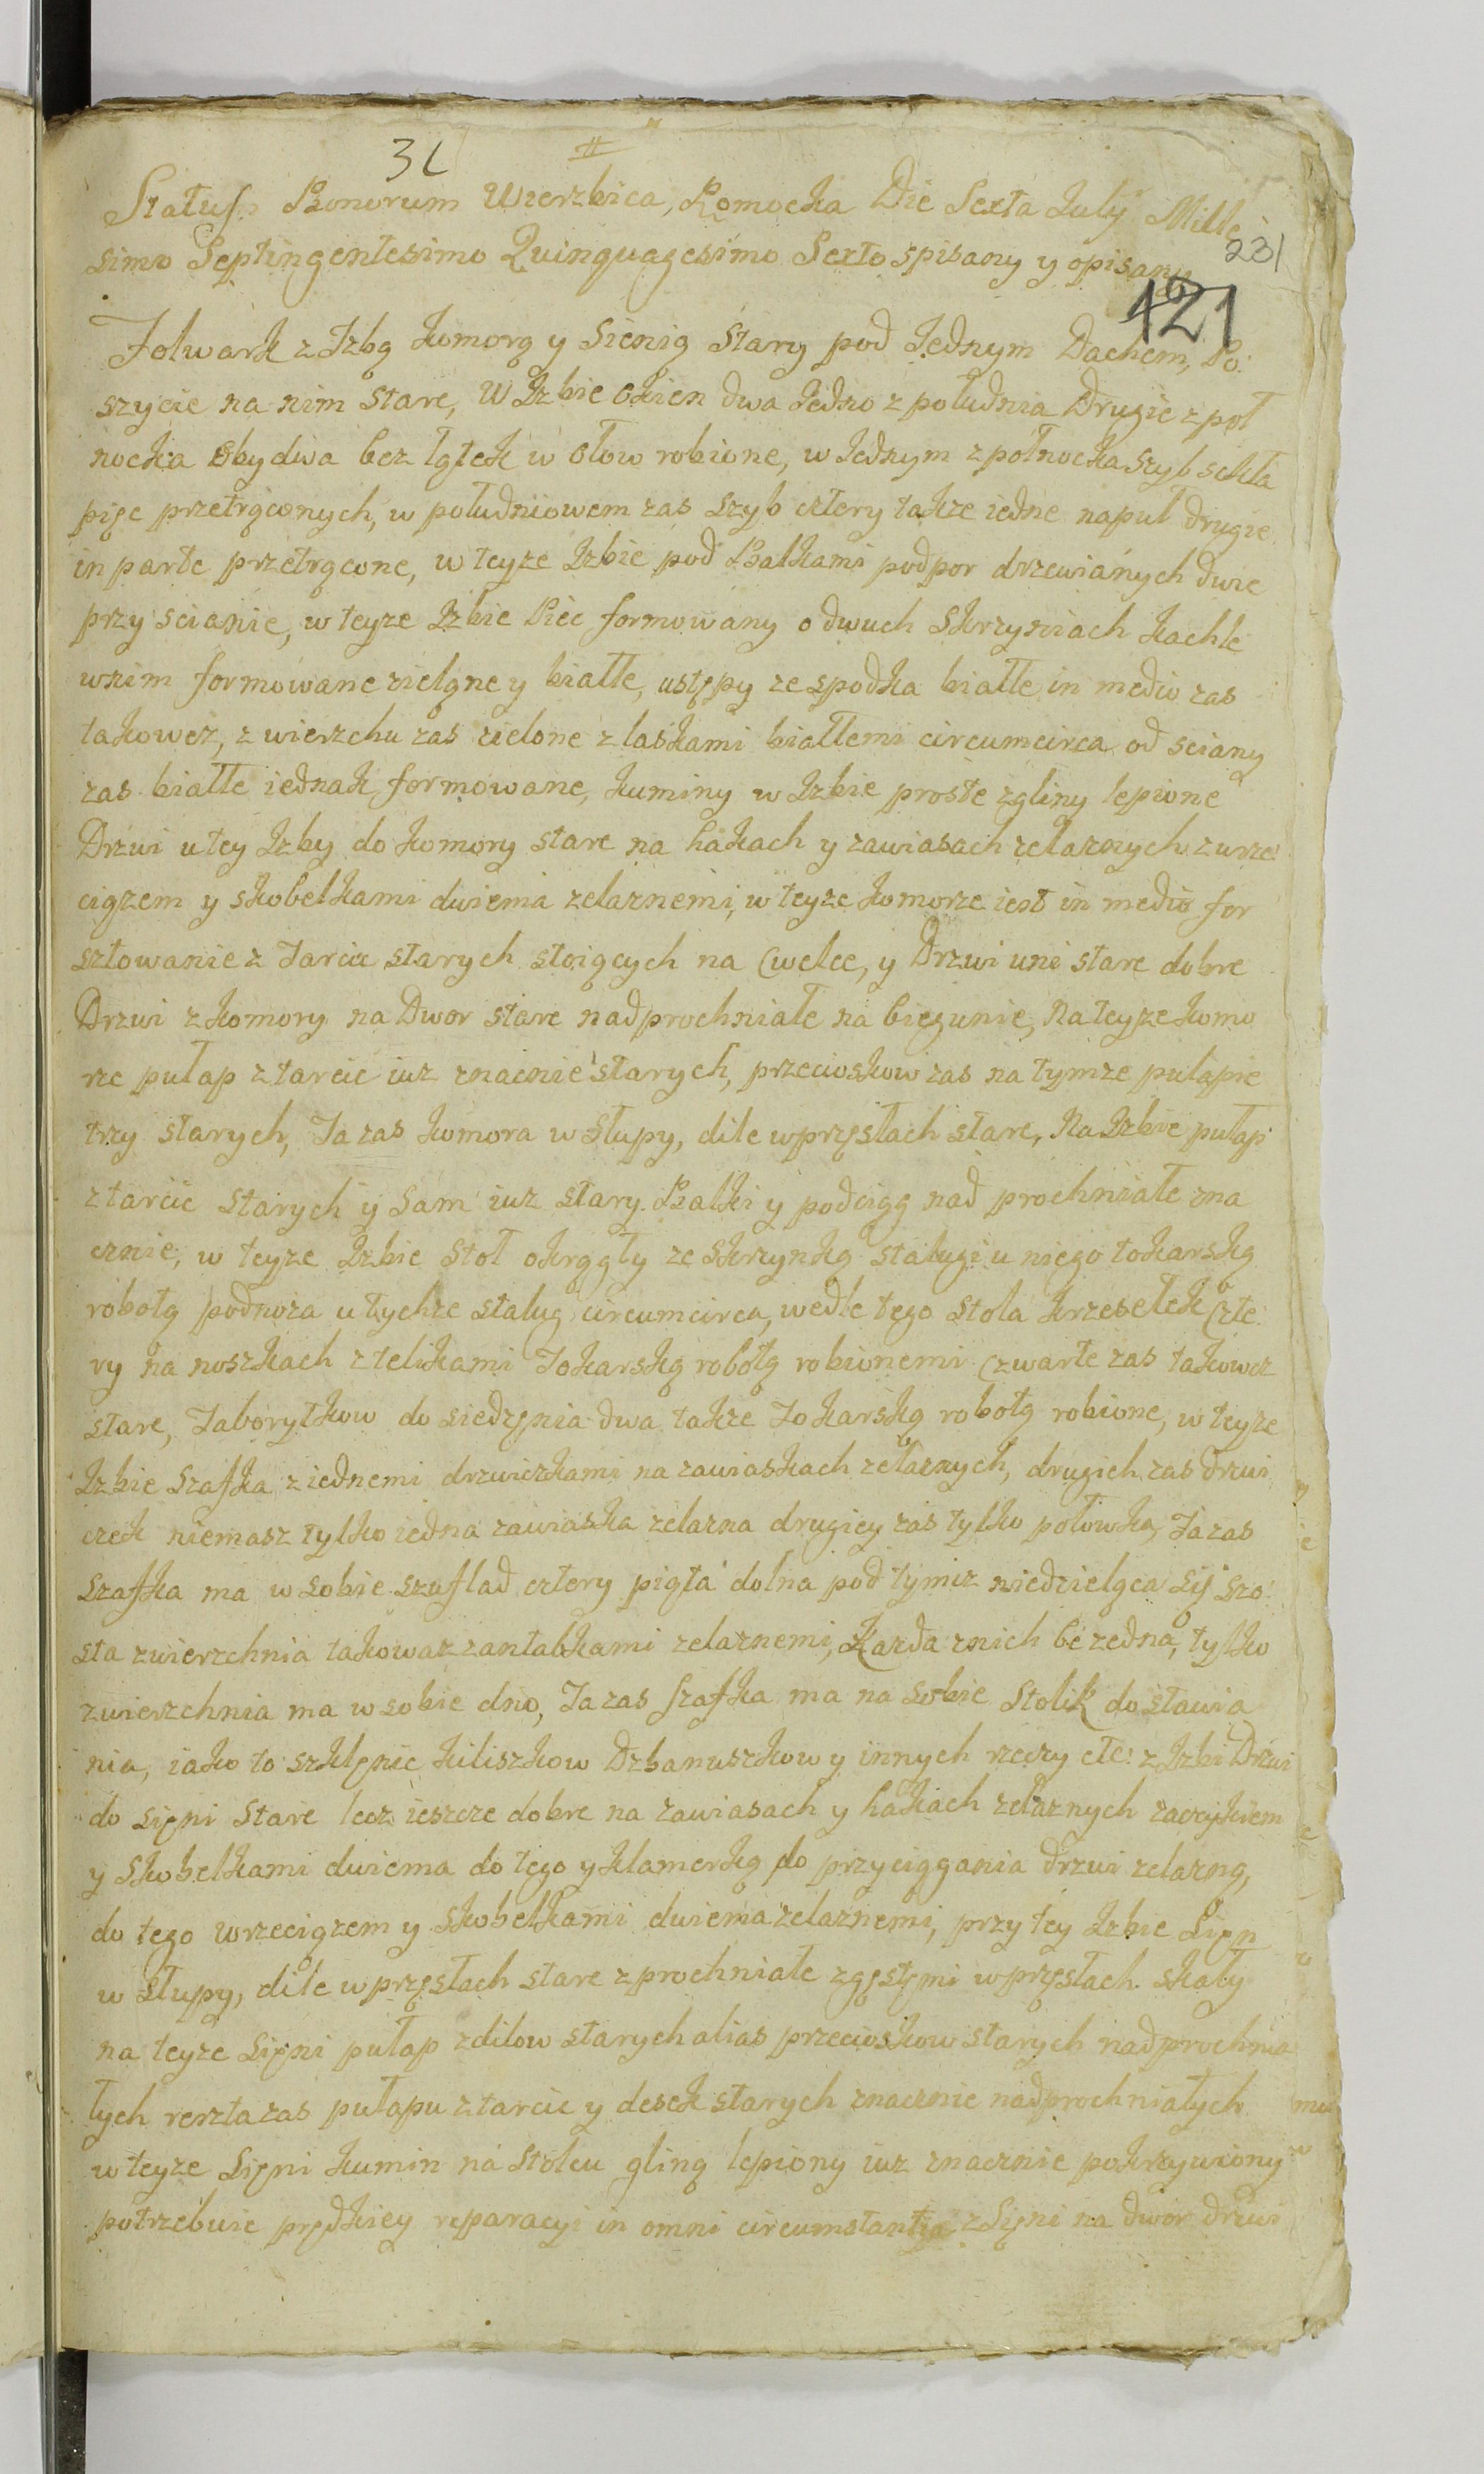 31 #
Status Bonorum Wierzbica, Łomocka Die Sexta July Mille
simo Septingentesimo Quinquagesimo Sexto spisany y opisany
231
121
Folwark z Izbą komorą y Sienią Stary pod Jednym Dachem, Po:
szycie na nim stare, W Izbie Okien dwa Jedno z południa Drugie z poł
nocka Obydwa bez lątek w Ołow robione, w Jednym z połnocka Szyb sckla
pięc przetrąconych, w południowem zas Szyb cztery także iedne naput drugie
in parte przetrącone, w teyze Izbie pod Balkami podpor drzewianych dwie
przy scianie, w teyze Izbie Piec formowany o dwuch Skrzyniach kachle
w nim formowane zieląne y białłe, ustępy ze spodka białłe in medio zas
takowez, z wierzchu zas zielone z laskami białłemi circumcirca od sciany
zas białłe iednak formowane, kuminy w Izbie proste z gliny lepione
Drzwi u tey Izby do komory stare na hakach y zawiasach zelaznych z wrze:
ciązem y skobelkami dwiema zelaznemi, w teyze komorze iest in medio for
sztowanie z Tarcic starych stoiących na Cwelce, y Drzwi uni stare dobre
Drzwi z komory na Dwor stare nadprochniałe na biegunie, Na teyze komo
rze pułap z tarcic iuz znacnie starych, przecioskow zas na tymze pułapie
trzy starych, Ta zas komora w słupy, dile w przęsłach stare, Na Izbie pułap
z tarcic starych y sam iuz stary. Balki y podciąg nad prochniałe zna
cznie, w teyze Izbie Stoł okrągły ze skrzynką stalugi u niego tokarską
robotą podnoza u tychze stalug circumcirca, wedle tego stola krzesełek czte:
ry na noszkach z telikami Tokarską robotą robionemi Czwarte zas takowez
stare, Taborytkow do siedzęnia dwa takze Tokarską robotą robione, w teyze
Izbie Szafka z iednemi drzwiczkami na zawiaskach zelaznych, drugich zas drzwi
czek niemasz tylko iedna zawiaska zelazna drugiey zas tylko połowka, Ta zas
szafka ma w sobie szuflad cztery piąta dolna pod tymiz niedzieląca sij szo:
sta zwierzchnia takowaz z antabkami zelaznemi, kazda z nich bezedna, tylko
zwierzchnia ma w sobie dno, Ta zas szafka ma na sobie Stolik do stawia
nia, iako to szklęnic kiliszkow Dzbanuszkow y innych rzeczy etc: z Izbi Drzwi
do sięni stare lecz ieszcze dobre na zawiasach y hakach zelaznych zaczykiem
y skobelkami dwiema do tego y klamerką do przyciągania drzwi zelazną,
do tego wrzeciązem y skobelkami dwiema zelaznemi, przy tey Izbie Sięn
w słupy, dile w przęsłach stare zprochniałe zgęstęmi w przęsłach skały
na teyze Sięni pułap z dilow starych alias przecioskow starych nadprochnia
łych reszta zas pułapu z tarcic y desek starych znacznie nadprochniałych
w teyze Sięni kumin na stolcu gliną lepiony iuz znacznie pokrzywiony
potrzebuie prędkiey reparacyi in omni circumstantia z Sięni na dwor drzwi